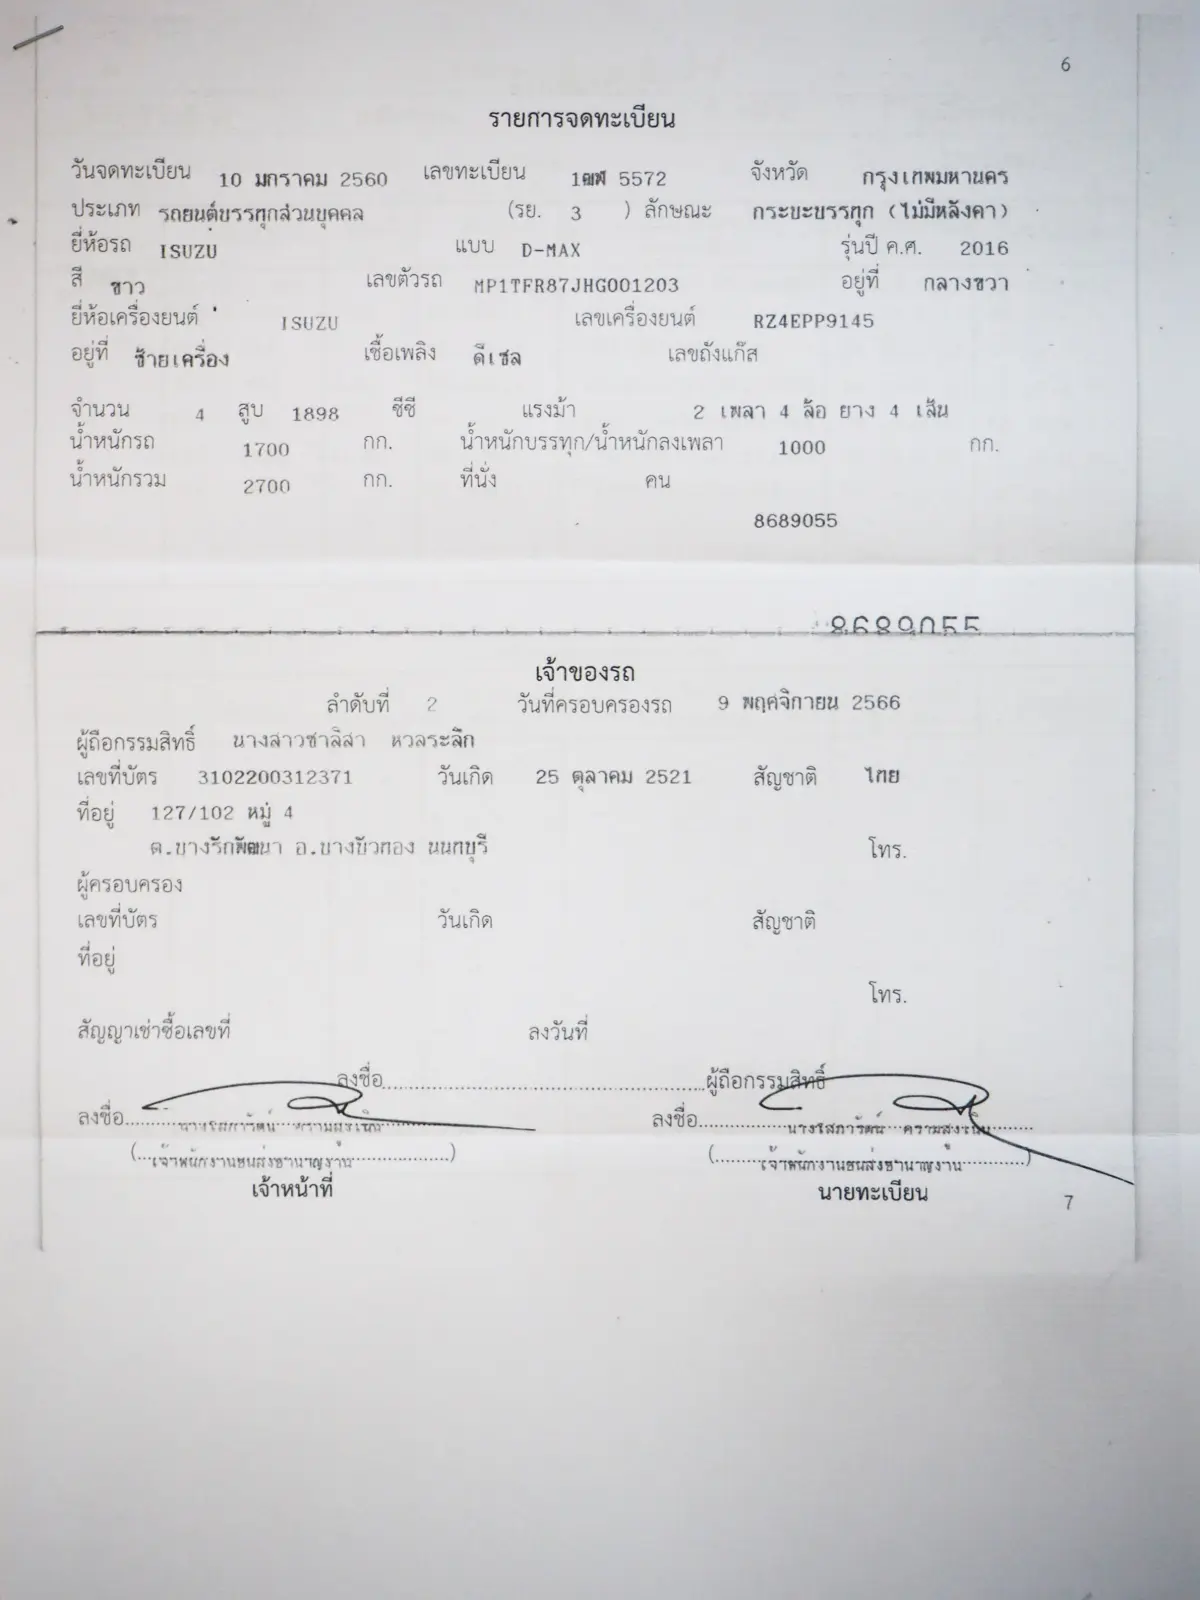 6
รายการจดทะเบียน
วันจดทะเบียน 10 มกราคม 2560 เลขทะเบียน 1ฒฬ 5572 จังหวัด กรุงเทพมหานคร
ประเภท รถยนต์บรรทุกส่วนบุคคล (รย. 3 ) ลักษณะ กระบะบรรทุก (ไม่มีหลังคา)
ยี่ห้อรถ ISUZU แบบ D-MAX รุ่นปี ค.ศ. 2016
สี ขาว เลขตัวรถ MP1TFR87JHG001203 อยู่ที่ กลางขวา
ยี่ห้อเครื่องยนต์ ISUZU เลขเครื่องยนต์ RZ4EPP9145
อยู่ที่ ซ้ายเครื่อง เชื้อเพลิง ดีเซล เลขถังแก๊ส
จำนวน 4 สูบ 1898 ซีซี แรงม้า 2 เพลา 4 ล้อ ยาง 4 เส้น
น้ำหนักรถ 1700 กก. น้ำหนักบรรทุก/น้ำหนักลงเพลา 1000 กก.
น้ำหนักรวม 2700 กก. ที่นั่ง คน
8689055
8689055
เจ้าของรถ
ลำดับที่ 2 วันที่ครอบครองรถ 9 พฤศจิกายน 2566
ผู้ถือกรรมสิทธิ์ นางสาวชาลิสา หวลระลึก
เลขที่บัตร 3102200312371 วันเกิด 25 ตุลาคม 2521 สัญชาติ ไทย
ที่อยู่ 127/102 หมู่ 4
ต.บางรักพัฒนา อ.บางบัวทอง นนทบุรี โทร.
ผู้ครอบครอง
เลขที่บัตร วันเกิด สัญชาติ
ที่อยู่
โทร.
สัญญาเช่าซื้อเลขที่ ลงวันที่
ลงชื่อ ผู้ถือกรรมสิทธิ์
ลงชื่อ ลงชื่อ
(เจ้าพนักงานขนส่งชำนาญงาน) (เจ้าพนักงานขนส่งชำนาญงาน)
เจ้าหน้าที่ นายทะเบียน
7